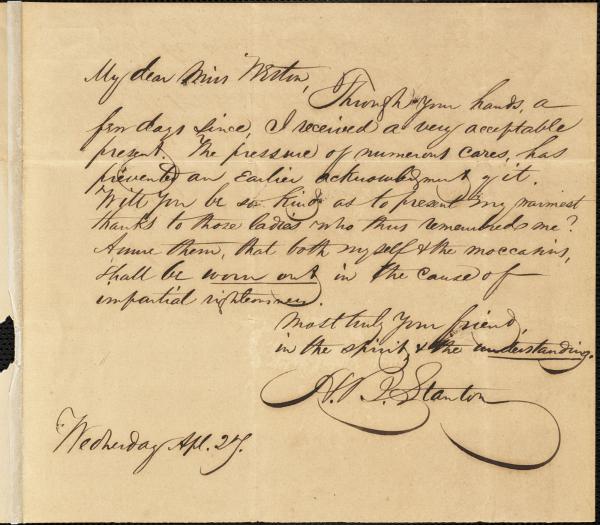 My dear Miss Weston,
Through your hands, a
few days since, I received a very acceptable
present. The pressure of numerous cares, has
prevented an earlier acknowledgment of it.
Will you be so kind as to present my warmest
thanks to those ladies who thus remembered me?
Assure them, that both myself & the moccasins,
shall be worn out in the cause of
impartial righteousness.
Most truly your friend,
in the spirit, & the understanding.
H. B. Stanton
Wednesday Apl. 27.